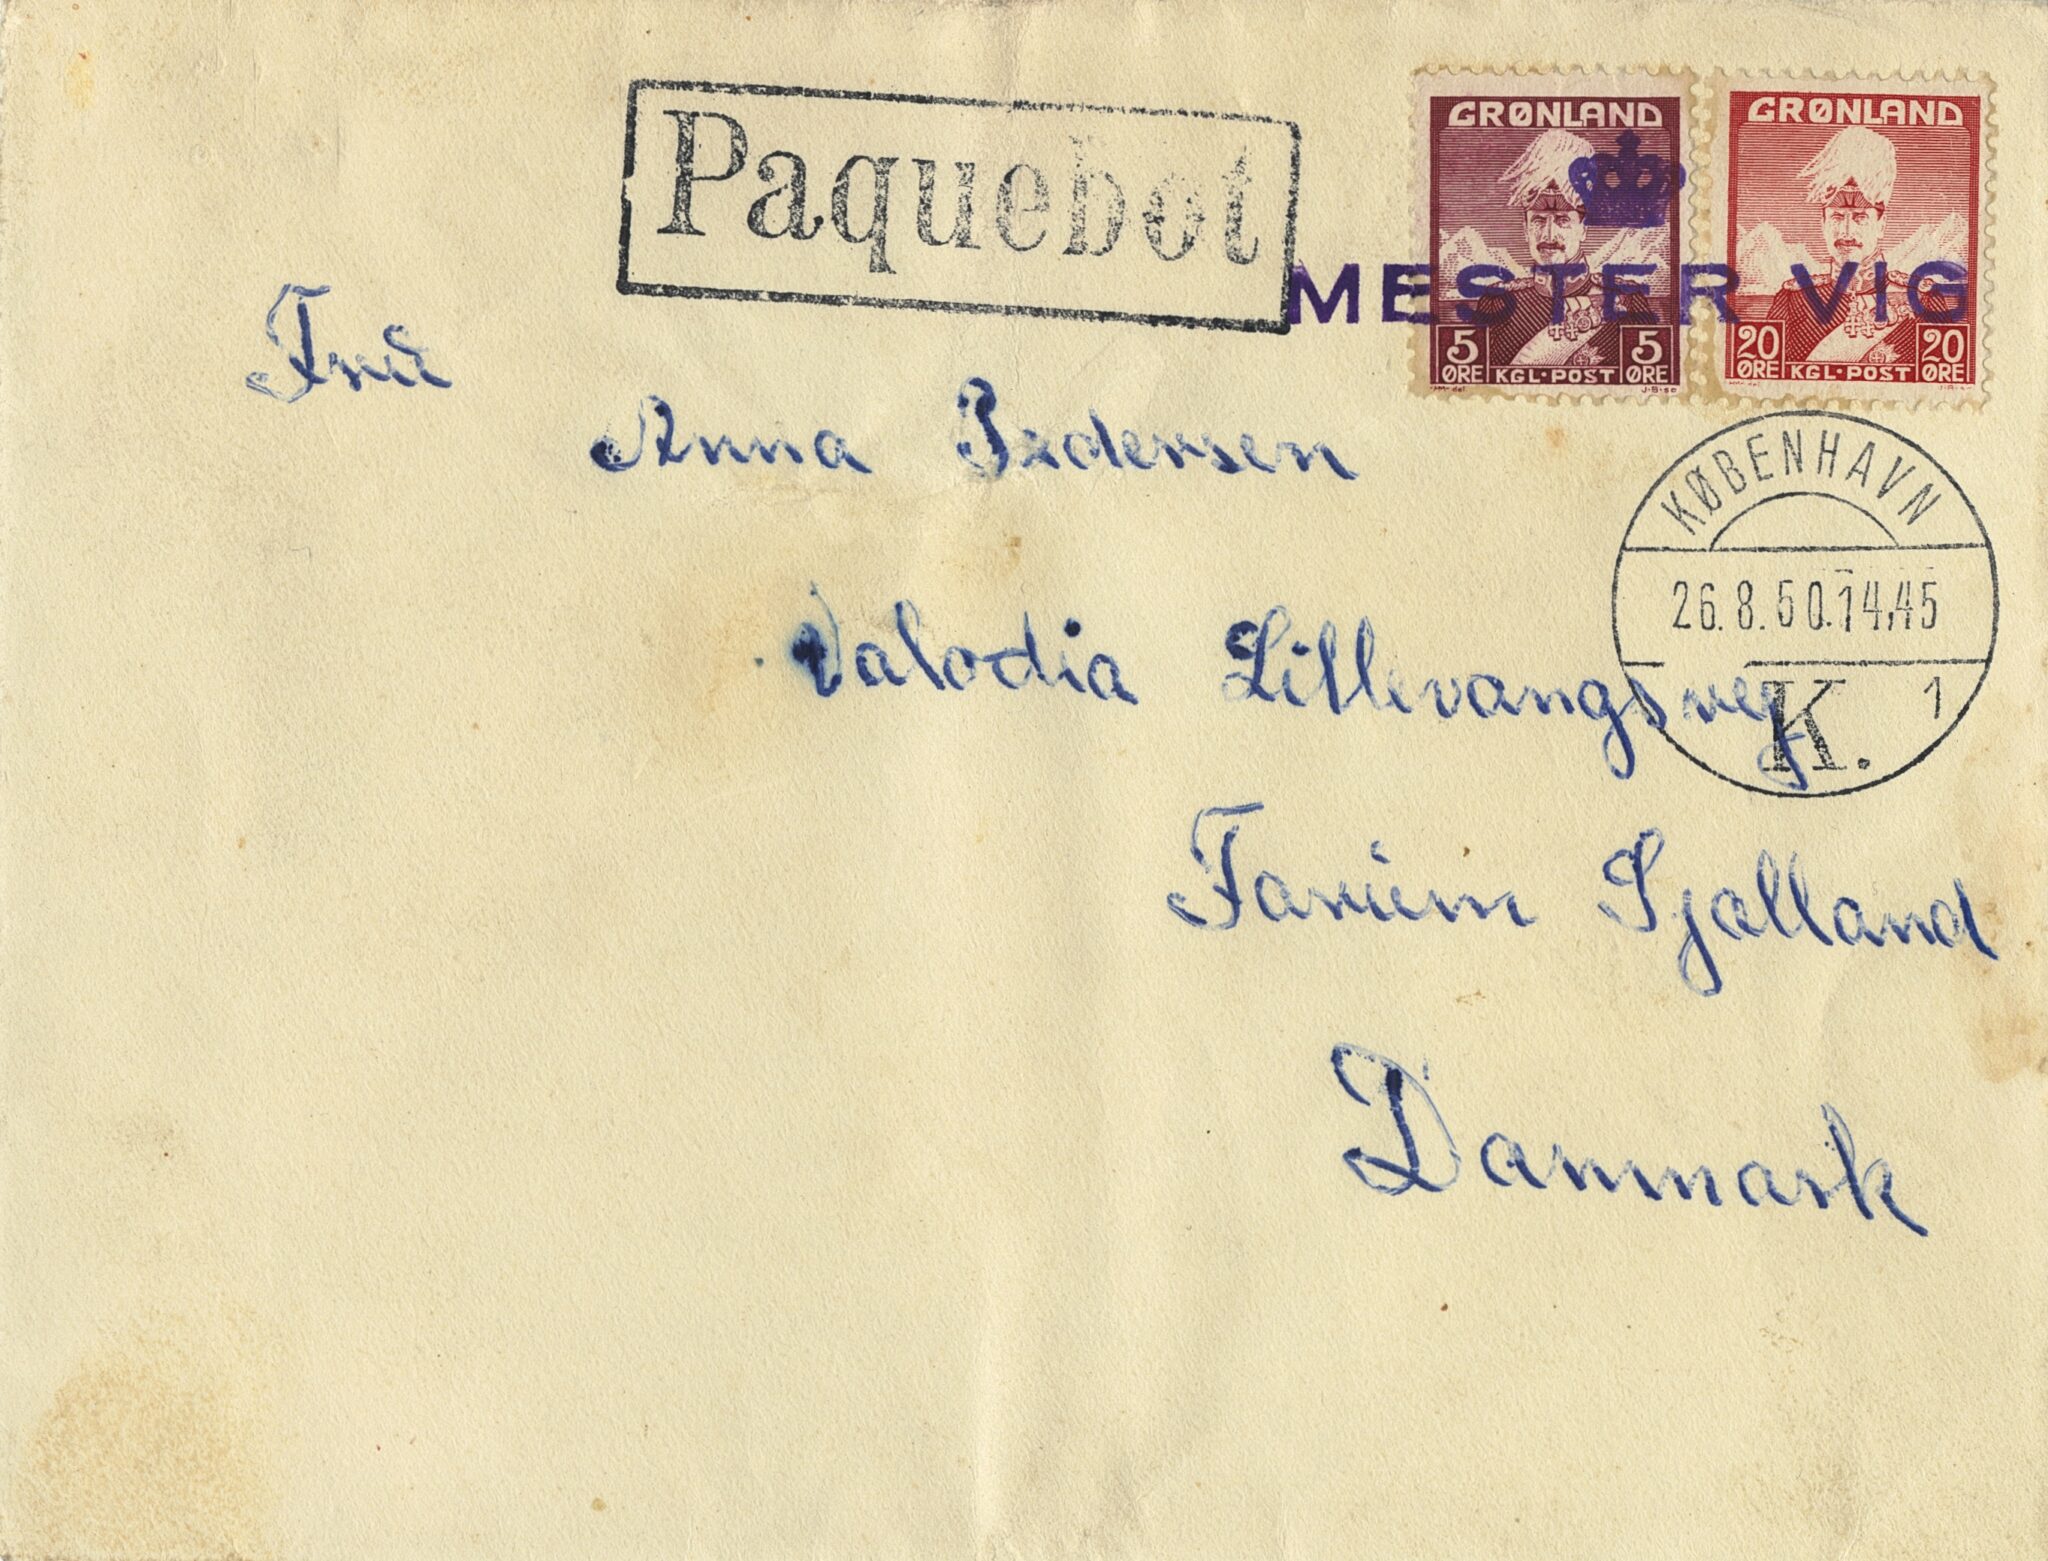 Paquebot
GRØNLAND
5 ØRE KGL·POST 5 ØRE
GRØNLAND
20 ØRE KGL·POST 20 ØRE
MESTER VIG
Frú
Anna Pedersen
Valodia Lillevangsvej
Farúm Sjalland
Danmark
KØBENHAVN
26.8.50.14,45
K. 1